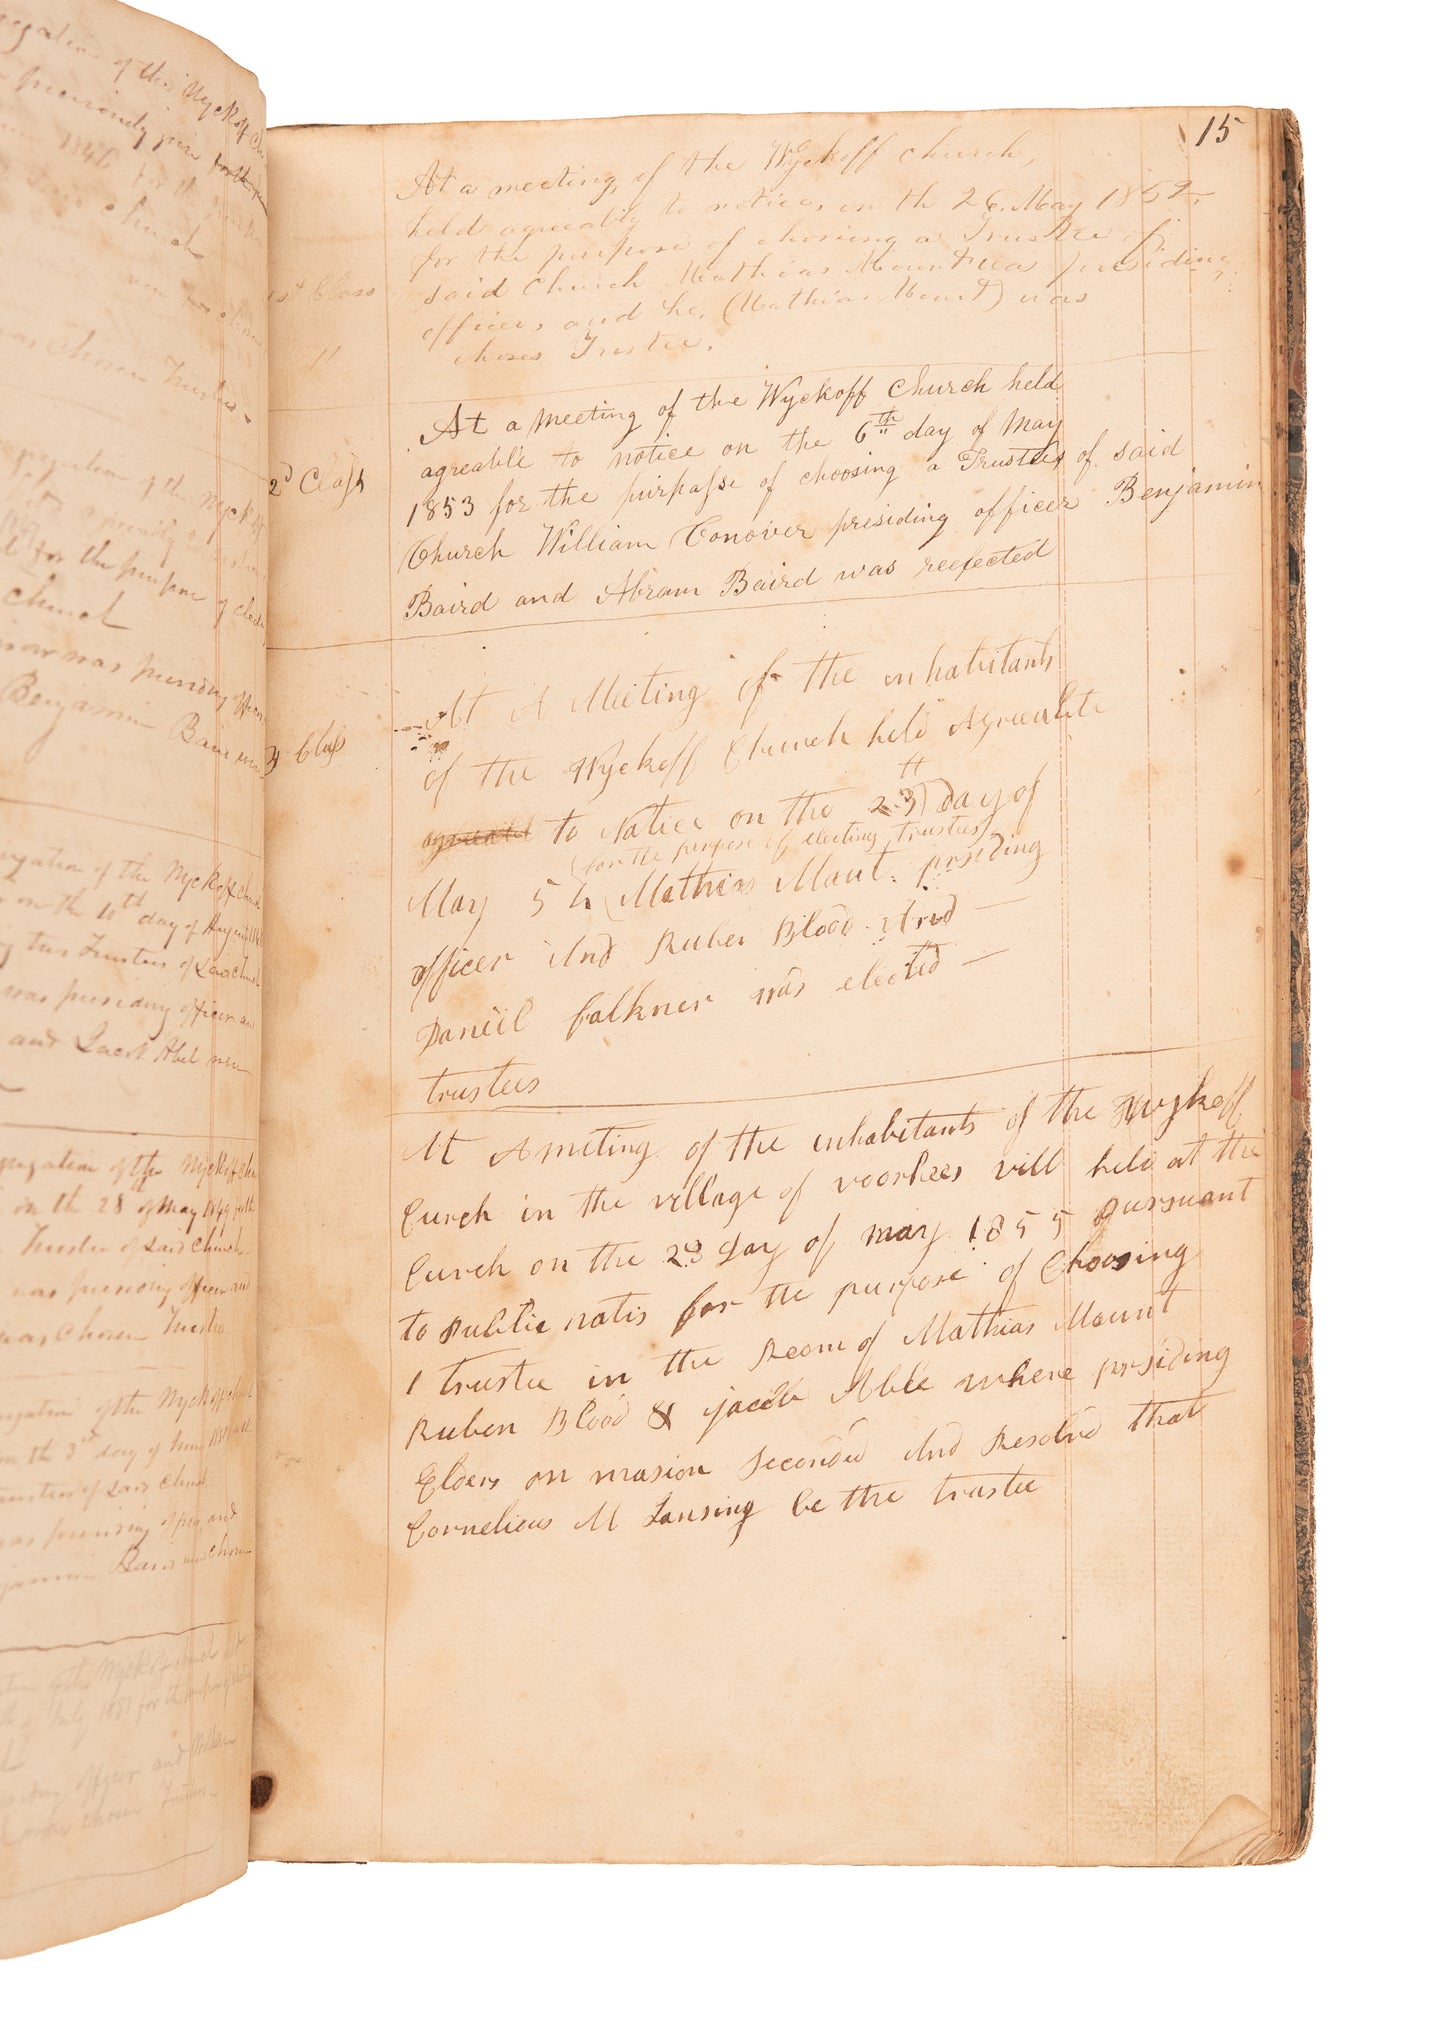 of the Wyckoff
1846 for the
said church
was Chosen Trustee
of the Wyckoff
for the purpose of
church
was presiding officer
Benjamin Baird
of the Wyckoff church
on the 11th day of August
two Trustees of said church
was presiding officer and
and Jacob Abel
of the Wyckoff
on the 28th of May 1849 for the
Trustee of said Church
was presiding officer and
was Chosen Trustee
of the Wyckoff
on the 3rd day of June
Trustees of said Church
was presiding officer and
Baird was chosen
of the Wyckoff church held
of July 1851 for the purpose of
officer and William
was chosen Trustee
15
At a meeting of the Wyckoff church,
held agreably to notice, on th 26. May 1852,
for the purpose of chosing a Trustee of
1st Class
said Church Mathias Mount was presiding
officer, and he, (Mathias Mount) was
11
choses Trustee.
At a Meeting of the Wyckoff Church held
agreable to notice on the 6th day of May
2d Class
1853 for the purpasse of choosing a Trustees of said
Church William Conover presiding officer Benjamin
Baird and Abram Baird was reefected
At A Meeting of the inhabitants
3 Class
of the Wyckoff Church held Agreeable
to Notice on the 23 Day of
(for the purpose of electing trustees)
May 54 Mathias Mout. presiding
officer And Ruben Blood And
Daniel Falkner was elected
trustees
At A meting of the inhabitants of the Wyckoff
Curch in the village of voorhees vill held at the
Curch on the 23 Day of may 1855 pursuant
to Public notis for the purpose of Choosing
1 trustee in the Room of Mathias Mount
Ruben Blood & jacob Able where presiding
Elders on masion Seconded And Resolvd that
Cornelious M Lansing be the trustee